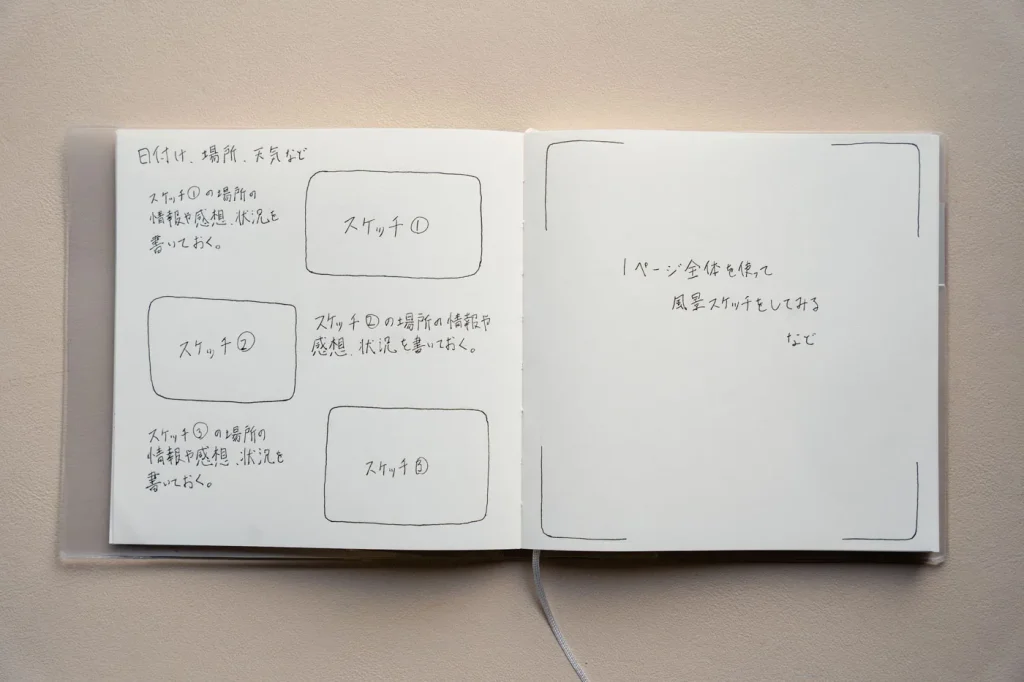 日付け、場所、天気など
スケッチ①の場所の
情報や感想、状況を
書いておく。
スケッチ①
スケッチ②
スケッチ②の場所の情報や
感想、状況を書いておく。
スケッチ③の場所の
情報や感想、状況を
書いておく。
スケッチ③
1ページ全体を使って
風景スケッチをしてみる
など